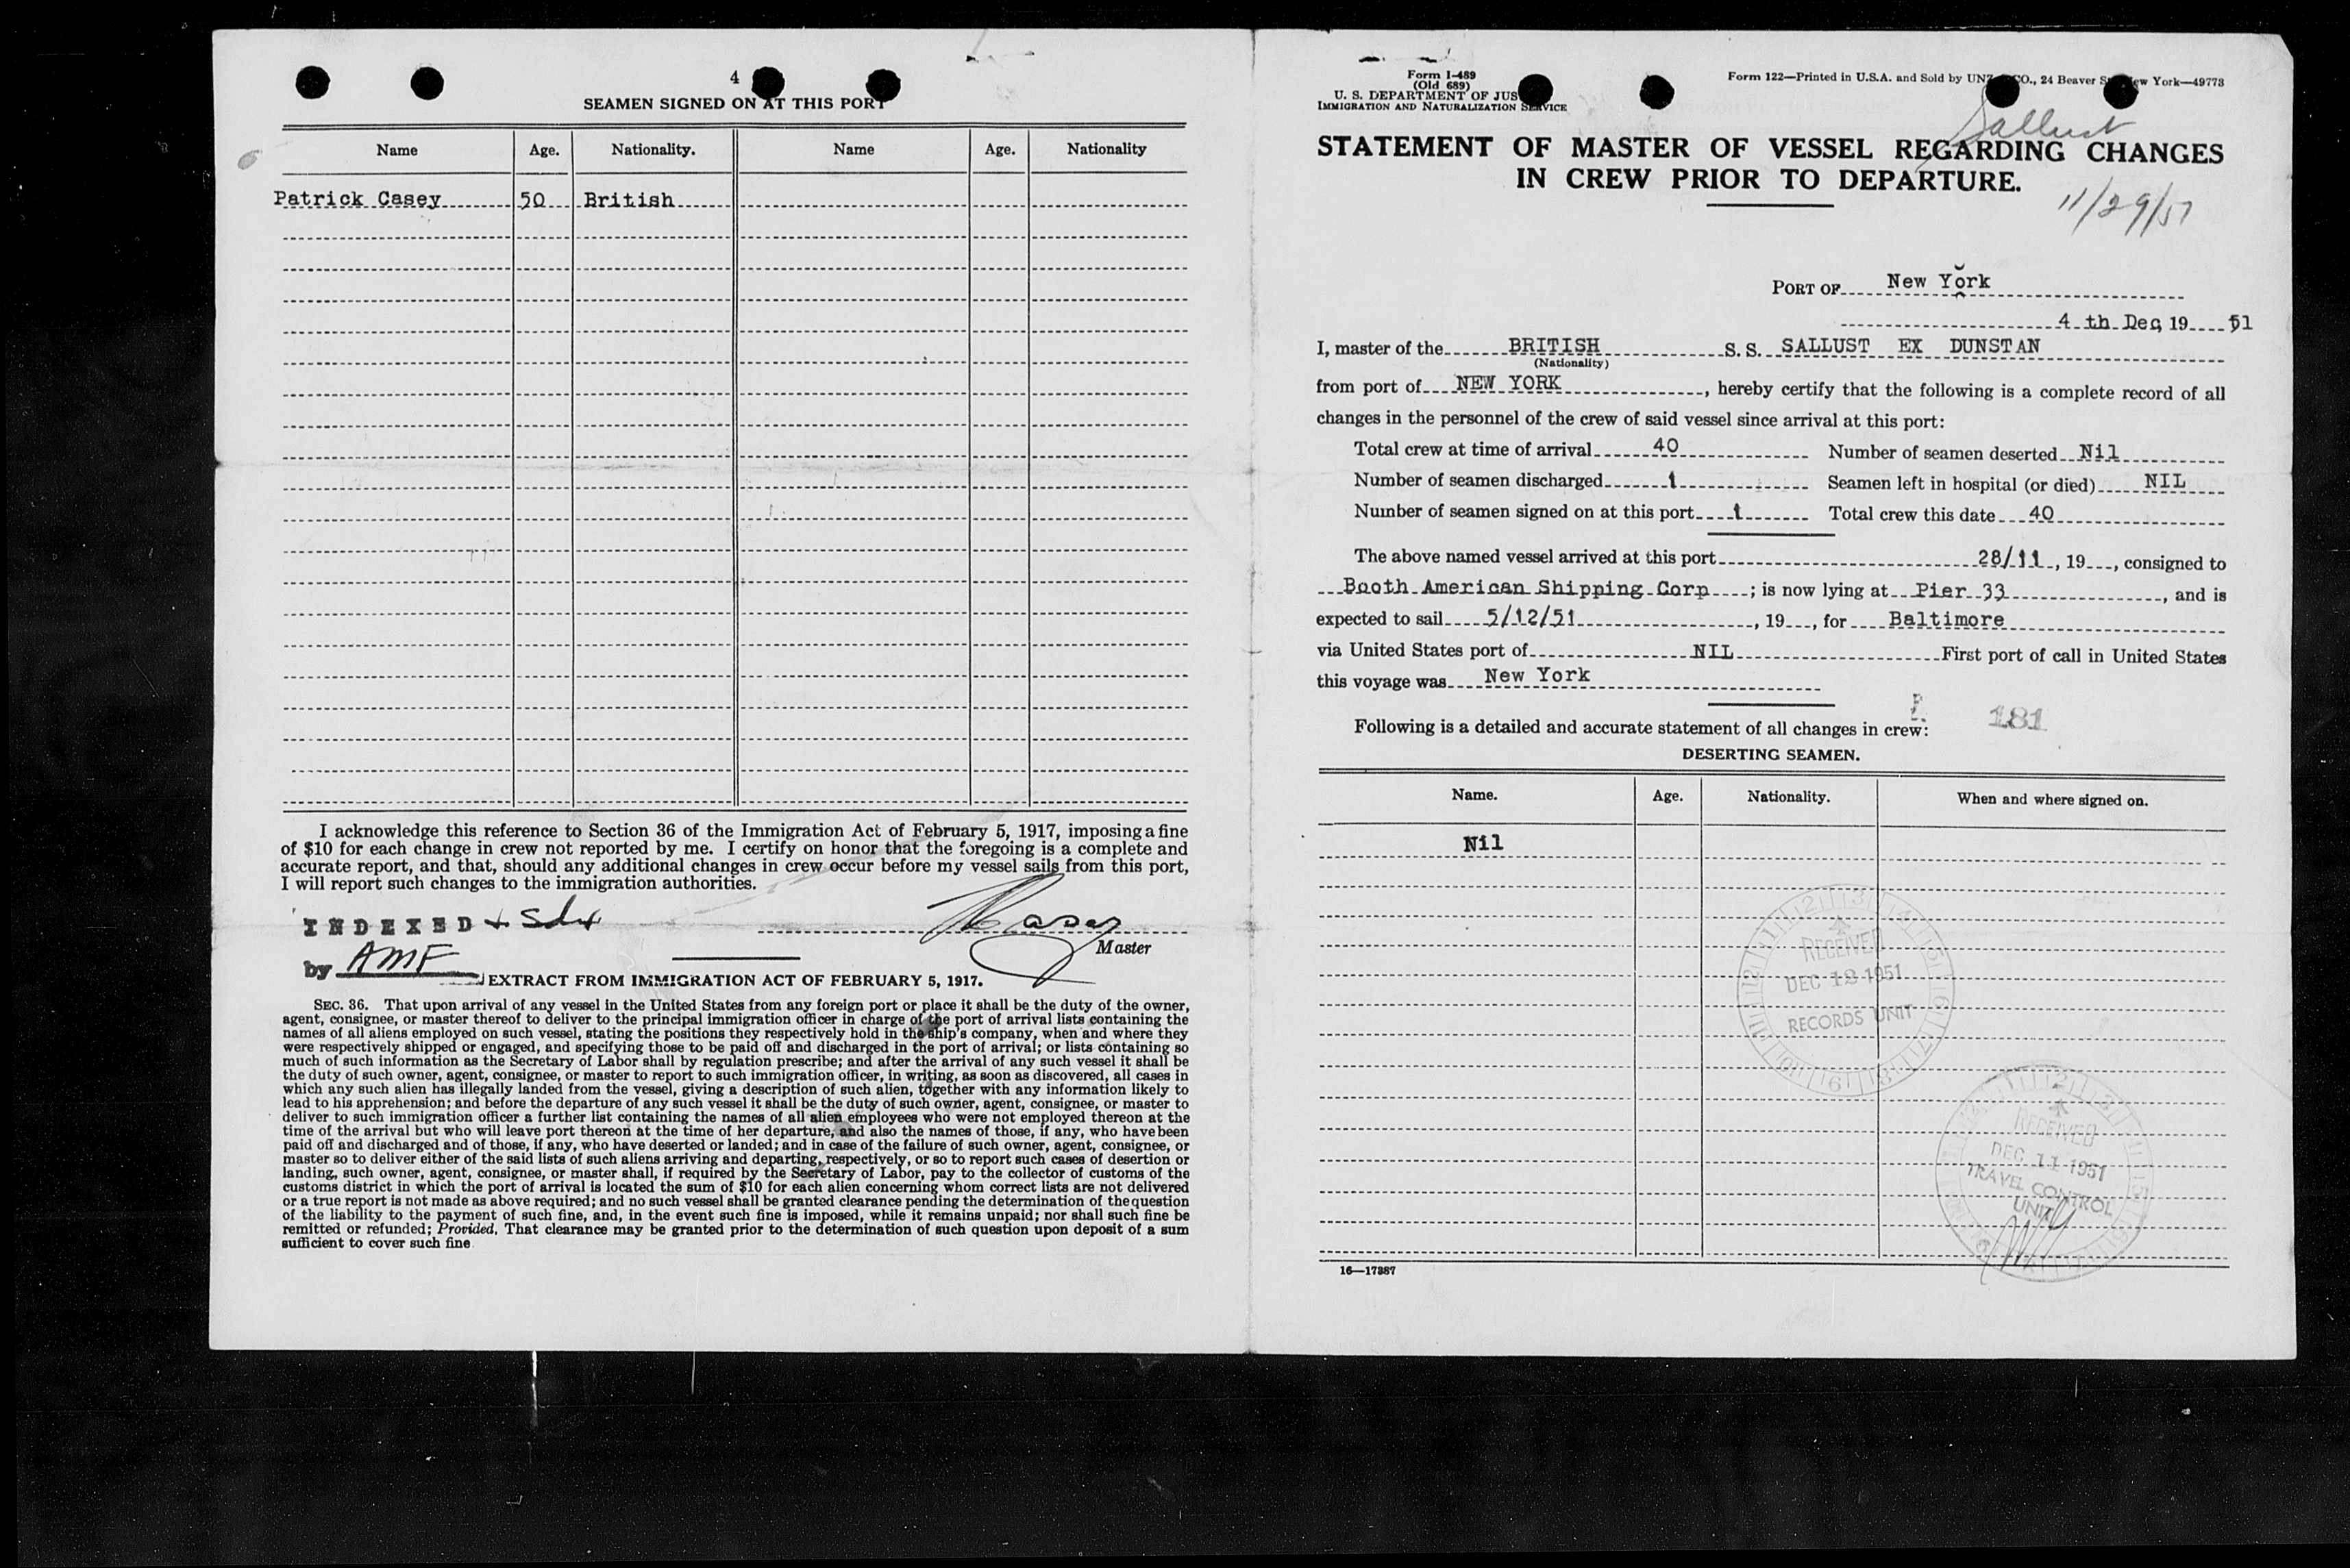 4
SEAMEN SIGNED ON AT THIS PORT
Name Age. Nationality. Name Age. Nationality
Patrick Casey 50 British
I acknowledge this reference to Section 36 of the Immigration Act of February 5, 1917, imposing a fine
of $10 for each change in crew not reported by me. I certify on honor that the foregoing is a complete and
accurate report, and that, should any additional changes in crew occur before my vessel sails from this port,
I will report such changes to the immigration authorities.
INDEXED
Master
by AMF
EXTRACT FROM IMMIGRATION ACT OF FEBRUARY 5, 1917.
SEC. 36. That upon arrival of any vessel in the United States from any foreign port or place it shall be the duty of the owner,
agent, consignee, or master thereof to deliver to the principal immigration officer in charge of the port of arrival lists containing the
names of all aliens employed on such vessel, stating the positions they respectively hold in the ship's company, when and where they
were respectively shipped or engaged, and specifying those to be paid off and discharged in the port of arrival; or lists containing so
much of such information as the Secretary of Labor shall by regulation prescribe; and after the arrival of any such vessel it shall be
the duty of such owner, agent, consignee, or master to report to such immigration officer, in writing, as soon as discovered, all cases in
which any such alien has illegally landed from the vessel, giving a description of such alien, together with any information likely to
lead to his apprehension; and before the departure of any such vessel it shall be the duty of such owner, agent, consignee, or master to
deliver to such immigration officer a further list containing the names of all alien employees who were not employed thereon at the
time of the arrival but who will leave port thereon at the time of her departure, and also the names of those, if any, who have been
paid off and discharged and of those, if any, who have deserted or landed; and in case of the failure of such owner, agent, consignee, or
master so to deliver either of the said lists of such aliens arriving and departing, respectively, or so to report such cases of desertion or
landing, such owner, agent, consignee, or master shall, if required by the Secretary of Labor, pay to the collector of customs of the
customs district in which the port of arrival is located the sum of $10 for each alien concerning whom correct lists are not delivered
or a true report is not made as above required; and no such vessel shall be granted clearance pending the determination of the question
of the liability to the payment of such fine, and, in the event such fine is imposed, while it remains unpaid; nor shall such fine be
remitted or refunded; Provided, That clearance may be granted prior to the determination of such question upon deposit of a sum
sufficient to cover such fine
Form I-489
(Old 689)
U. S. DEPARTMENT OF JUS
IMMIGRATION AND NATURALIZATION SERVICE
Form 122—Printed in U.S.A. and Sold by UNZ CO., 24 Beaver St., New York—49773
Sallust
STATEMENT OF MASTER OF VESSEL REGARDING CHANGES
IN CREW PRIOR TO DEPARTURE.
11/29/51
PORT OF New York
4 th Dec, 19 51
I, master of the BRITISH S. S. SALLUST EX DUNSTAN
(Nationality)
from port of NEW YORK, hereby certify that the following is a complete record of all
changes in the personnel of the crew of said vessel since arrival at this port:
Total crew at time of arrival 40 Number of seamen deserted Nil
Number of seamen discharged 1 Seamen left in hospital (or died) NIL
Number of seamen signed on at this port 1 Total crew this date 40
The above named vessel arrived at this port 28/11, 19, consigned to
Booth American Shipping Corp; is now lying at Pier 33, and is
expected to sail 5/12/51, 19, for Baltimore
via United States port of NIL First port of call in United States
this voyage was New York
181
Following is a detailed and accurate statement of all changes in crew:
DESERTING SEAMEN.
Name. Age. Nationality. When and where signed on.
Nil
RECEIVED
DEC 12 1951
RECORDS UNIT
RECEIVED
DEC 11 1951
TRAVEL CONTROL
UNIT
16—17887